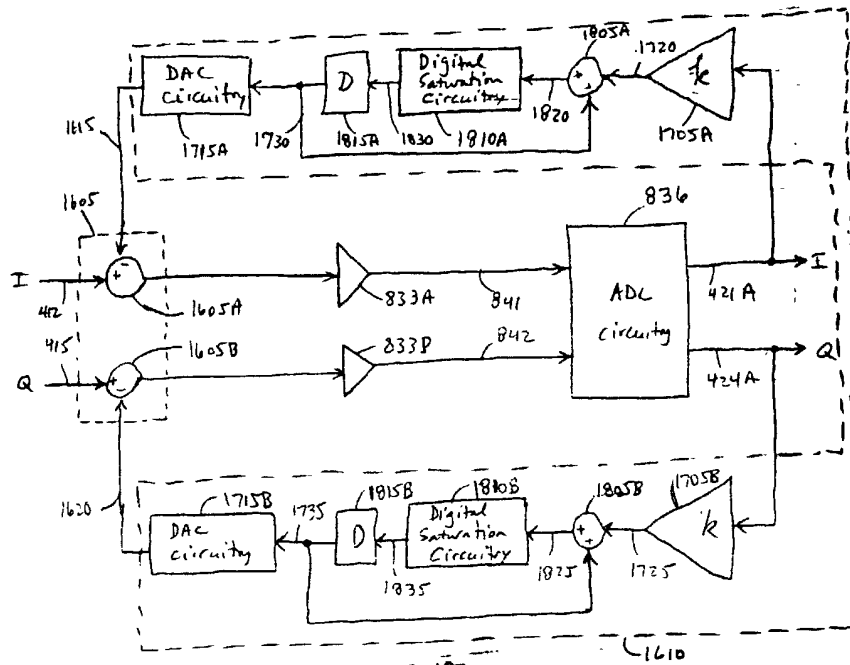 1805A
DAC
Circuitry
D
Digital
Saturation
Circuitry
+
+
1720
k
1615
1715A
1730
1815A
1830
1810A
1820
1705A
1605
836
I
+
-
I
412
1605A
833A
841
ADC
circuitry
421A
415
1605B
833B
842
Q
+
-
Q
424A
1715B
1815B
1810B
1805B
1705B
1620
1735
DAC
circuitry
D
Digital
Saturation
Circuitry
+
+
k
1835
1825
1725
1610